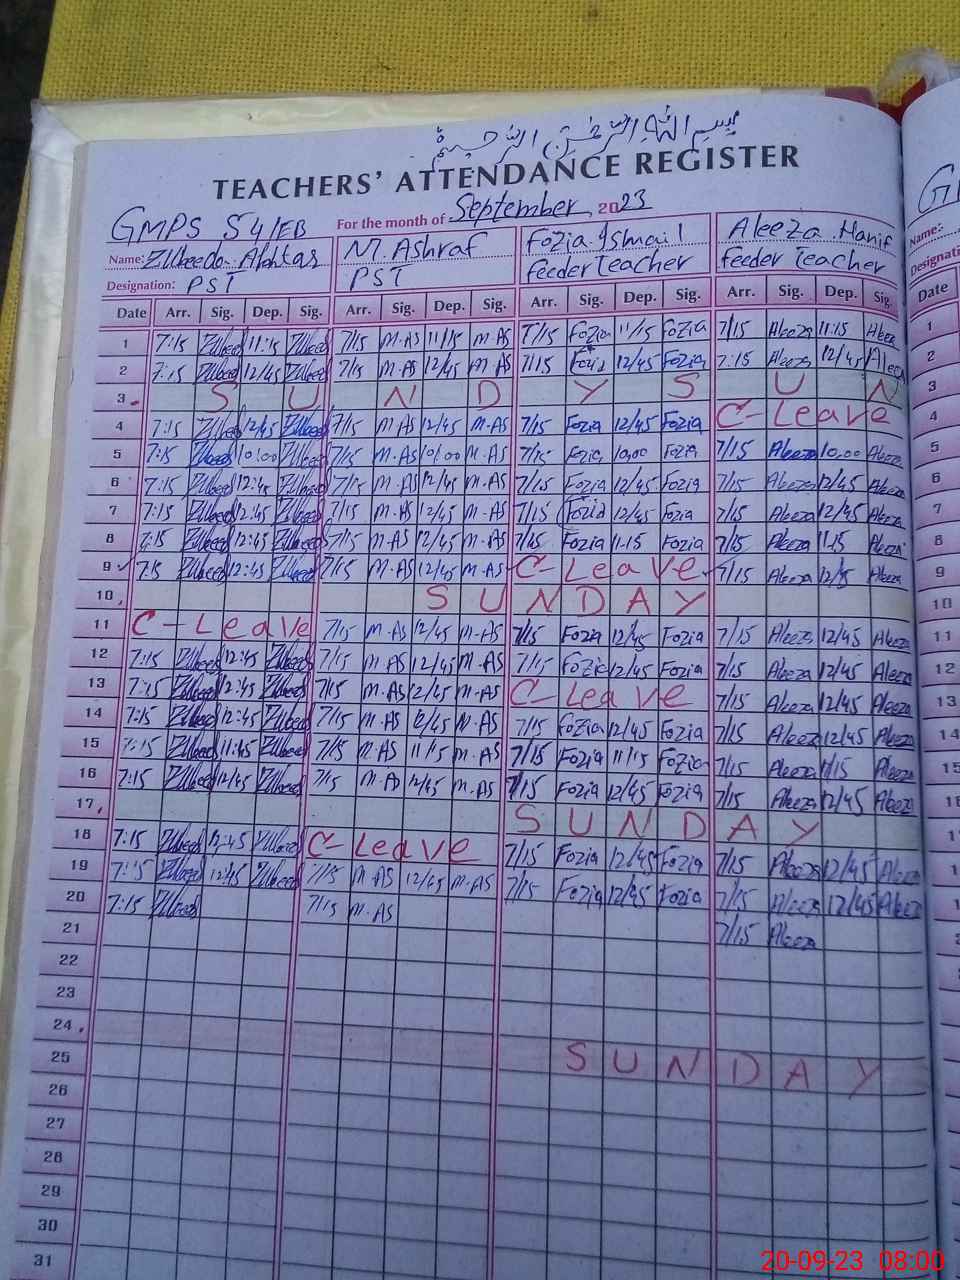 بسم اللہ الرحمن الرحیم
TEACHERS' ATTENDANCE REGISTER
GMPS 54/EB For the month of September 2023
Name: Zubeeda Akhtar M. Ashraf Fozia Ismail Aleeza Hanif
Designation: PST PST feeder Teacher feeder Teacher
Date Arr. Sig. Dep. Sig. Arr. Sig. Dep. Sig. Arr. Sig. Dep. Sig. Arr. Sig. Dep. Sig.
1 7:15 11:15 7/15 M.AS 11/15 M.AS 7/15 Fozia 11/15 Fozia 7/15 Aleeza 11:15
2 7:15 12/45 7/15 M.AS 12/45 M.AS 7/15 12/45 Fozia 7:15 Aleeza 12/45
3 S U N D Y S U N
4 7:15 12/45 7/15 M.AS 12/45 M.AS 7/15 Fozia 12/45 Fozia C-Leave
5 7:15 10:00 7/15 M.AS 10/00 M.AS 7/15 Fozia 10,00 Fozia 7/15 Aleeza 10,00 Aleeza
6 7:15 12:45 7/15 M.AS 12/45 M.AS 7/15 Fozia 12/45 Fozia 7/15 Aleeza 12/45 Aleeza
7 7:15 12:45 7/15 M.AS 12/45 M.AS 7/15 Fozia 12/45 Fozia 7/15 Aleeza 12/45 Aleeza
8 7:15 12:45 7/15 M.AS 12/45 M.AS Fozia 11-15 Fozia 7/15 Aleeza 11.15 Aleeza
9 7:15 12:45 7/15 M.AS 12/45 M.AS C-Leave 7/15 Aleeza Aleeza
10 S U N D A Y
11 C-Leave 7/15 M.AS 12/45 M.AS 7/15 Fozia 12/45 Fozia 7/15 Aleeza 12/45 Aleeza
12 7:15 12:45 7/15 M.AS 12/45 M.AS 7/15 Fozia 12/45 Fozia 7/15 Aleeza 12/45 Aleeza
13 7:15 12:45 7/15 M.AS 12/45 M.AS C-Leave 7/15 Aleeza 12/45 Aleeza
14 7:15 12:45 7/15 M.AS 12/45 M.AS 7/15 Fozia 12/45 Fozia 7/15 Aleeza 12/45 Aleeza
15 7:15 11:45 7/15 M.AS 11/15 M.AS 7/15 Fozia 11/15 Fozia 7/15 Aleeza 11/15 Aleeza
16 7:15 12/45 7/15 12/45 M.AS 7/15 Fozia 12/45 Fozia 7/15 Aleeza 12/45 Aleeza
17 S U N D A Y
18 7:15 12:45 C-Leave 7/15 Fozia 12/45 Fozia 7/15 Aleeza 12/45 Aleeza
19 7:15 12:45 7/15 M.AS 12/45 M.AS 7/15 Fozia 12/45 Fozia 7/15 Aleeza 12/45 Aleeza
20 7:15 7/15 M.AS 7/15 Aleeza
21
22
23
24
25 S U N D A Y
26
27
28
29
30
31
Name:
Date
1
2
3
4
5
6
7
8
9
10
11
12
13
14
15
20-09-23 08:00